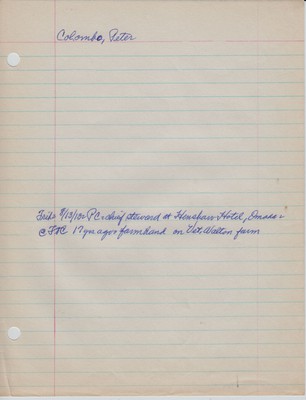 Colombo, Peter
9/13/102 PC chief steward at Henshaw Hotel,
17 yrs ago farmhand on Vet. Walton farm